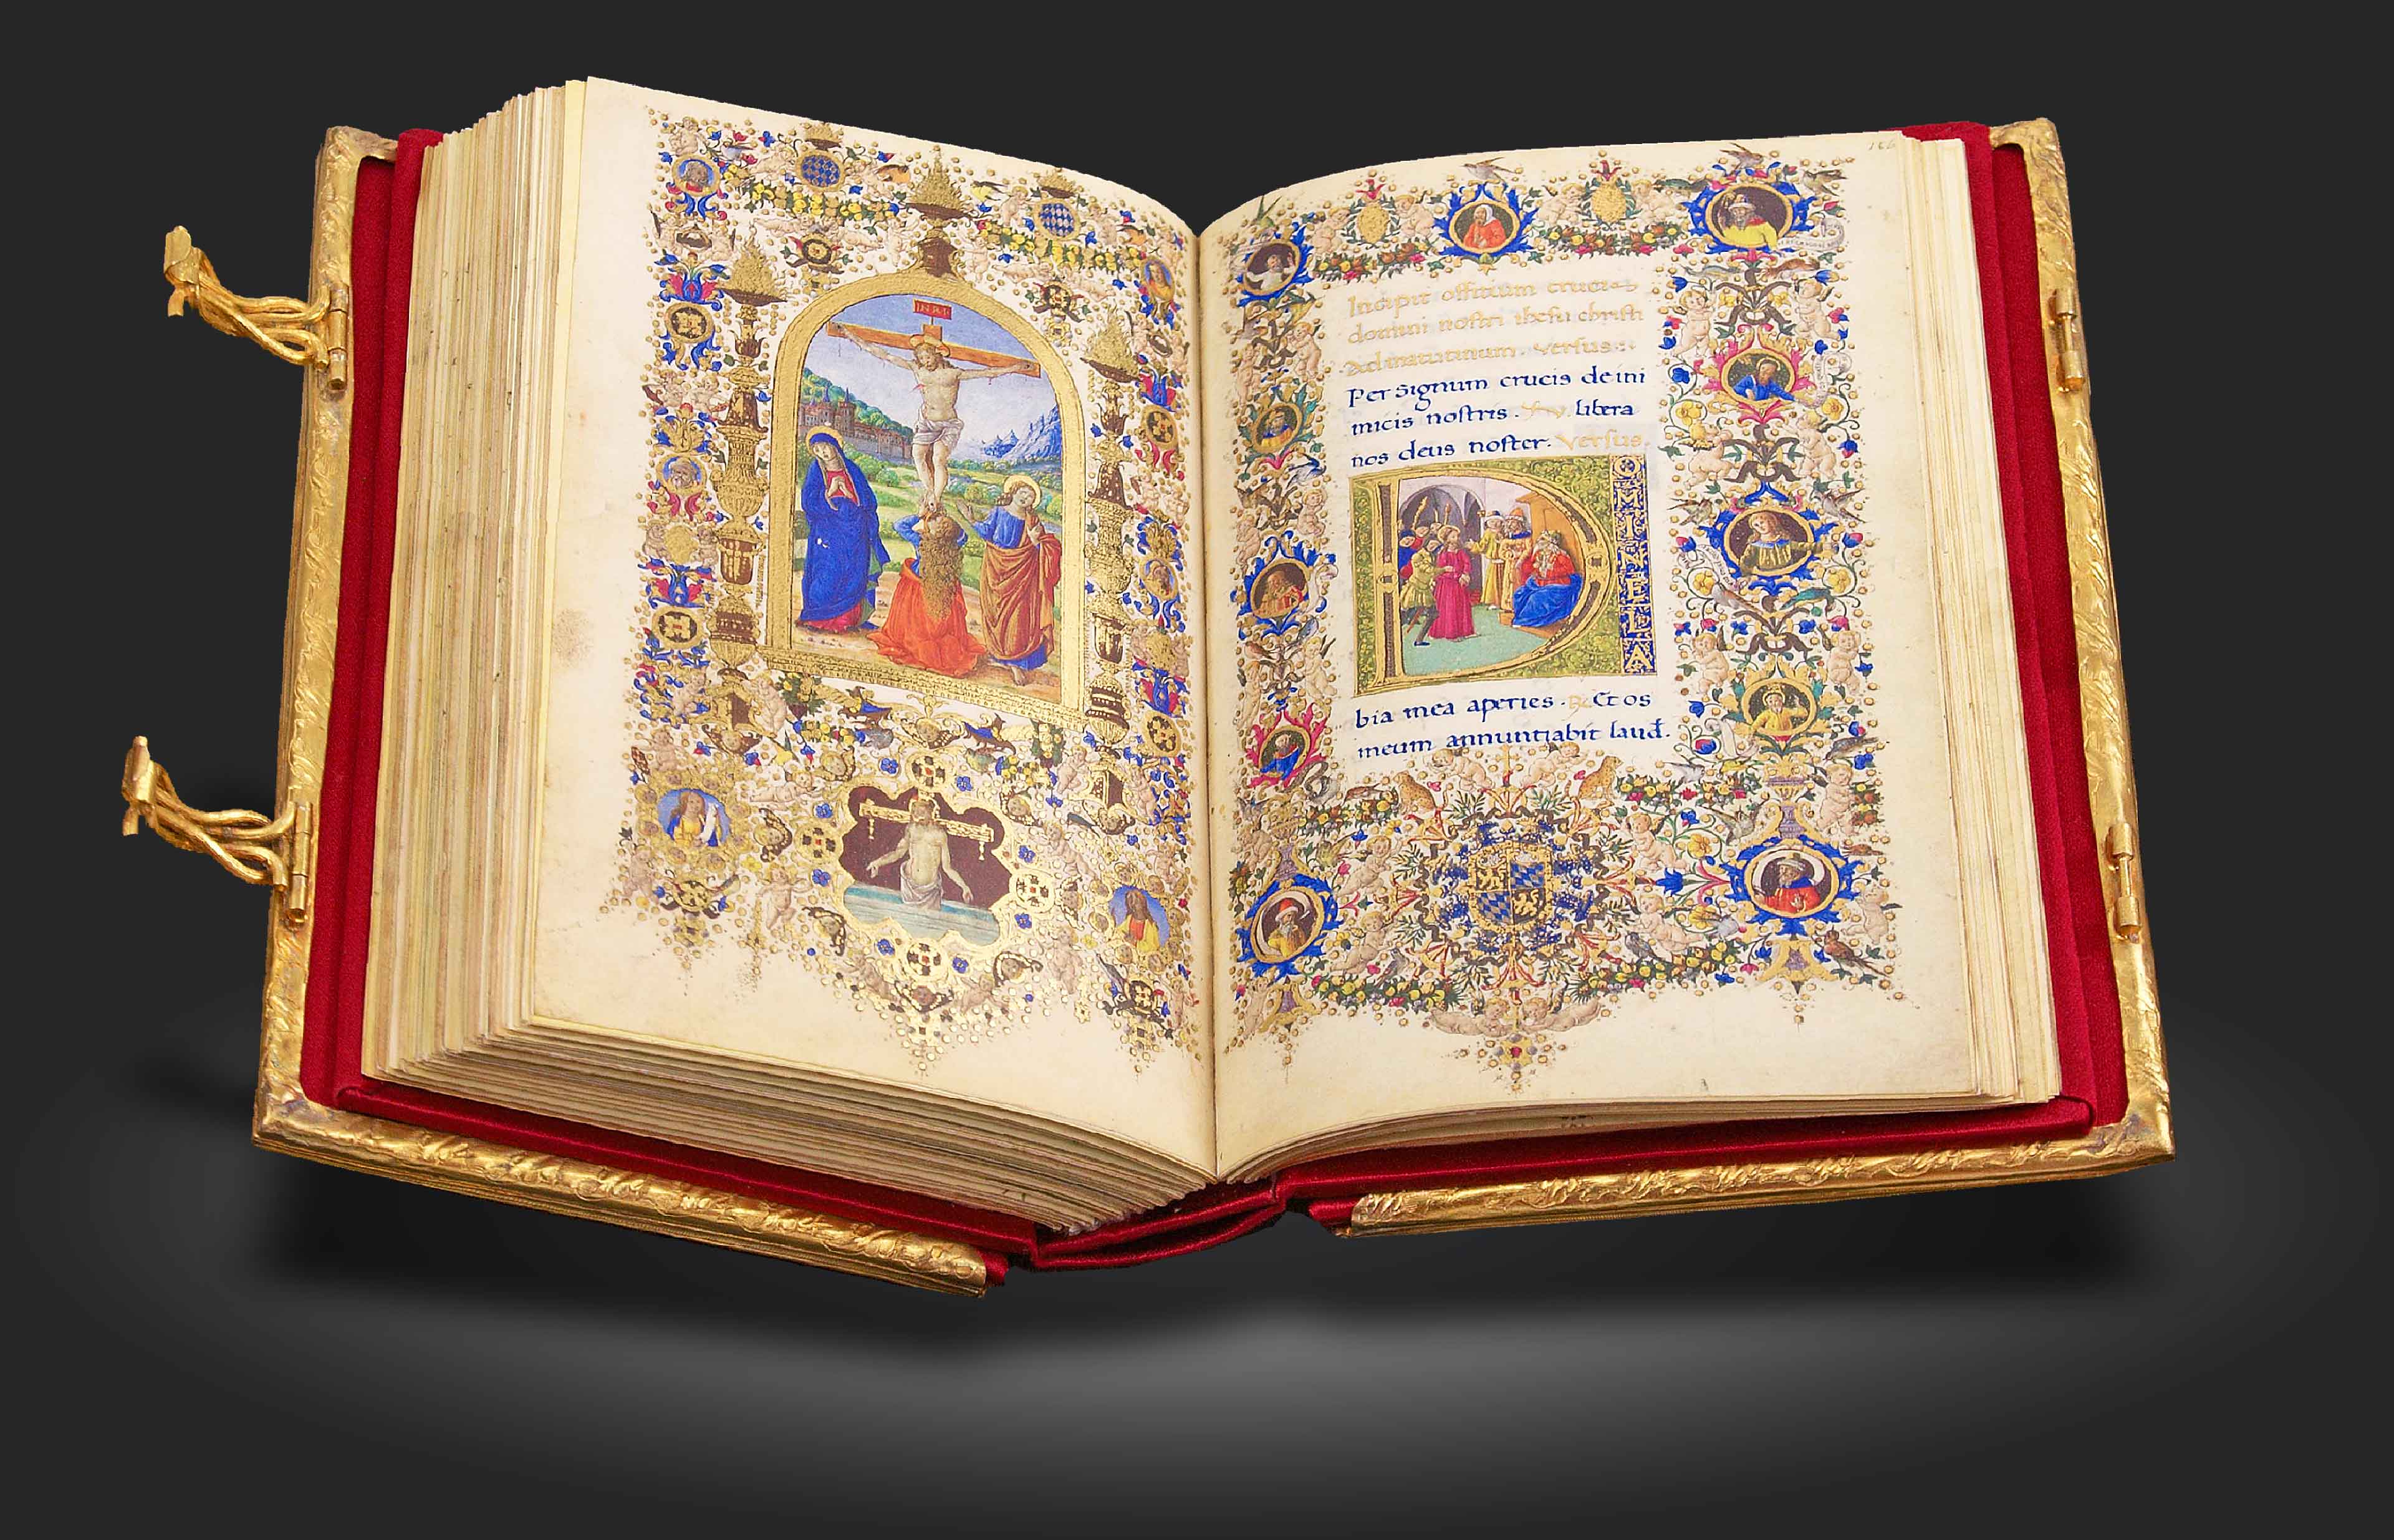 INRI
186
Incipit offitium crucis
domini nostri ihesu christi
Ad matutinum. versus:
Per signum crucis de ini
micis nostris. libera
nos deus noster. Versus.
D OMINE LA
bia mea aperies. Et os
meum annuntiabit laud̄.